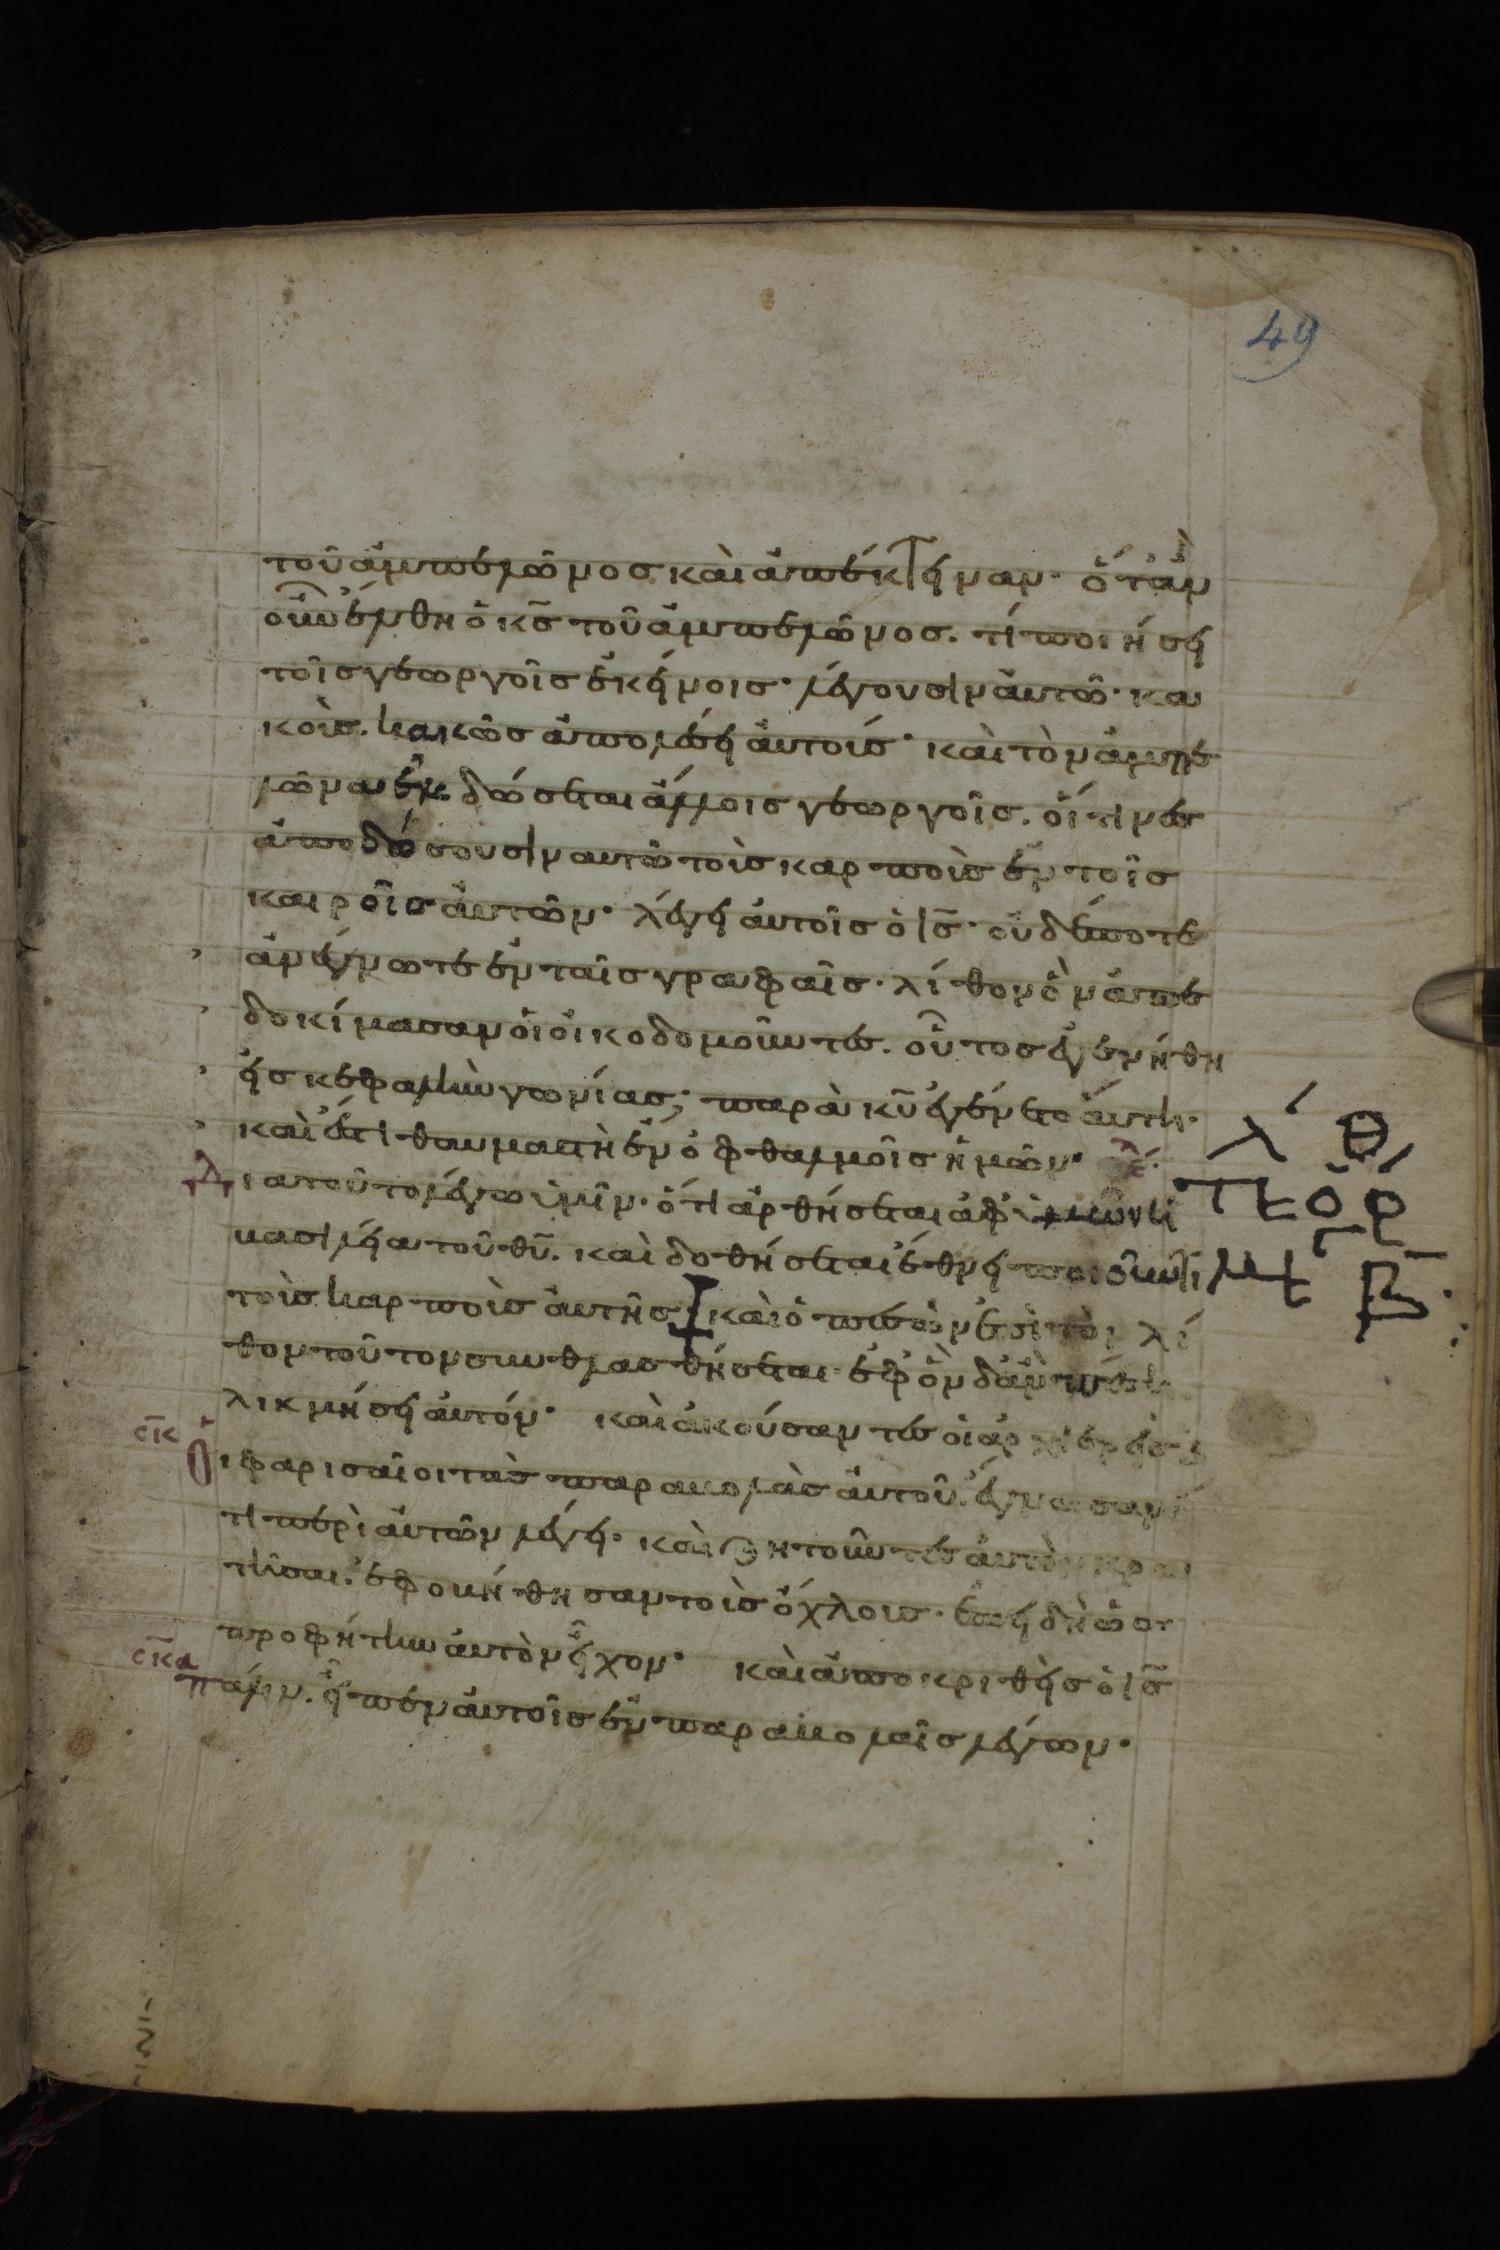 49
τοῦ ἀμπελῶνος καὶ ἀπέκτειναν· ὅταν
οὖν ἔλθη ὁ κ̅ς̅ τοῦ ἀμπελῶνος. τί ποιήσει
τοῖς γεωργοῖς ἐκείνοις· λέγουσιν αὐτῶ· κα
κοὺς κακῶς ἀπολέσει αὐτούς· καὶ τὸν ἀμπε
λῶνα ἐκδώσεται ἄλλοις γεωργοῖς. οἵτινες
ἀποδώσουσιν αὐτῶ τοὺς καρποὺς ἐν τοῖς
καιροῖς αὐτῶν· λέγει αὐτοῖς ὁ ι̅ς̅· οὐδέποτε
ἀνέγνωτε ἐν ταῖς γραφαῖς· λίθον ὃν ἀπε
δοκίμασαν οἱ οἰκοδομοῦντες. οὗτος ἐγενήθη
εἰς κεφαλὴν γωνίας· παρὰ κ̅υ̅ ἐγένετο αὕτη·
καὶ ἔστι θαυμαστὴ ἐν ὀφθαλμοῖς ἡμῶν·
Διατοῦτο λέγω ὑμῖν· ὅτι ἀρθήσεται ἀφ' ὑμῶν ἡ
βασιλεία τοῦ θ̅υ̅. καὶ δοθήσεται ἔθνει ποιοῦντι
τοὺς καρποὺς αὐτῆς· καὶ ὁ πεσὼν ἐπὶ τὸν λί
θον τοῦτον συνθλασθήσεται· ἐφ' ὃν δ' ἂν πέση
λικμήσει αὐτόν· καὶ ἀκούσαντες οἱ ἀρχιερεῖς κ
σ̅κ̅
οἱ φαρισαῖοι τὰς παραβολὰς αὐτοῦ. ἔγνωσαν ὅ
τι περὶ αὐτῶν λέγει· καὶ ζητοῦντες αὐτὸν κρα
τῆσαι. ἐφοβήθησαν τοὺς ὄχλους· ἐπειδὴ ὡς
προφήτην αὐτὸν εἶχον· καὶ ἀποκριθεὶς ὁ ι̅ς̅
σ̅κ̅α̅
πάλιν. εἶπεν αὐτοῖς ἐν παραβολαῖς λέγων·